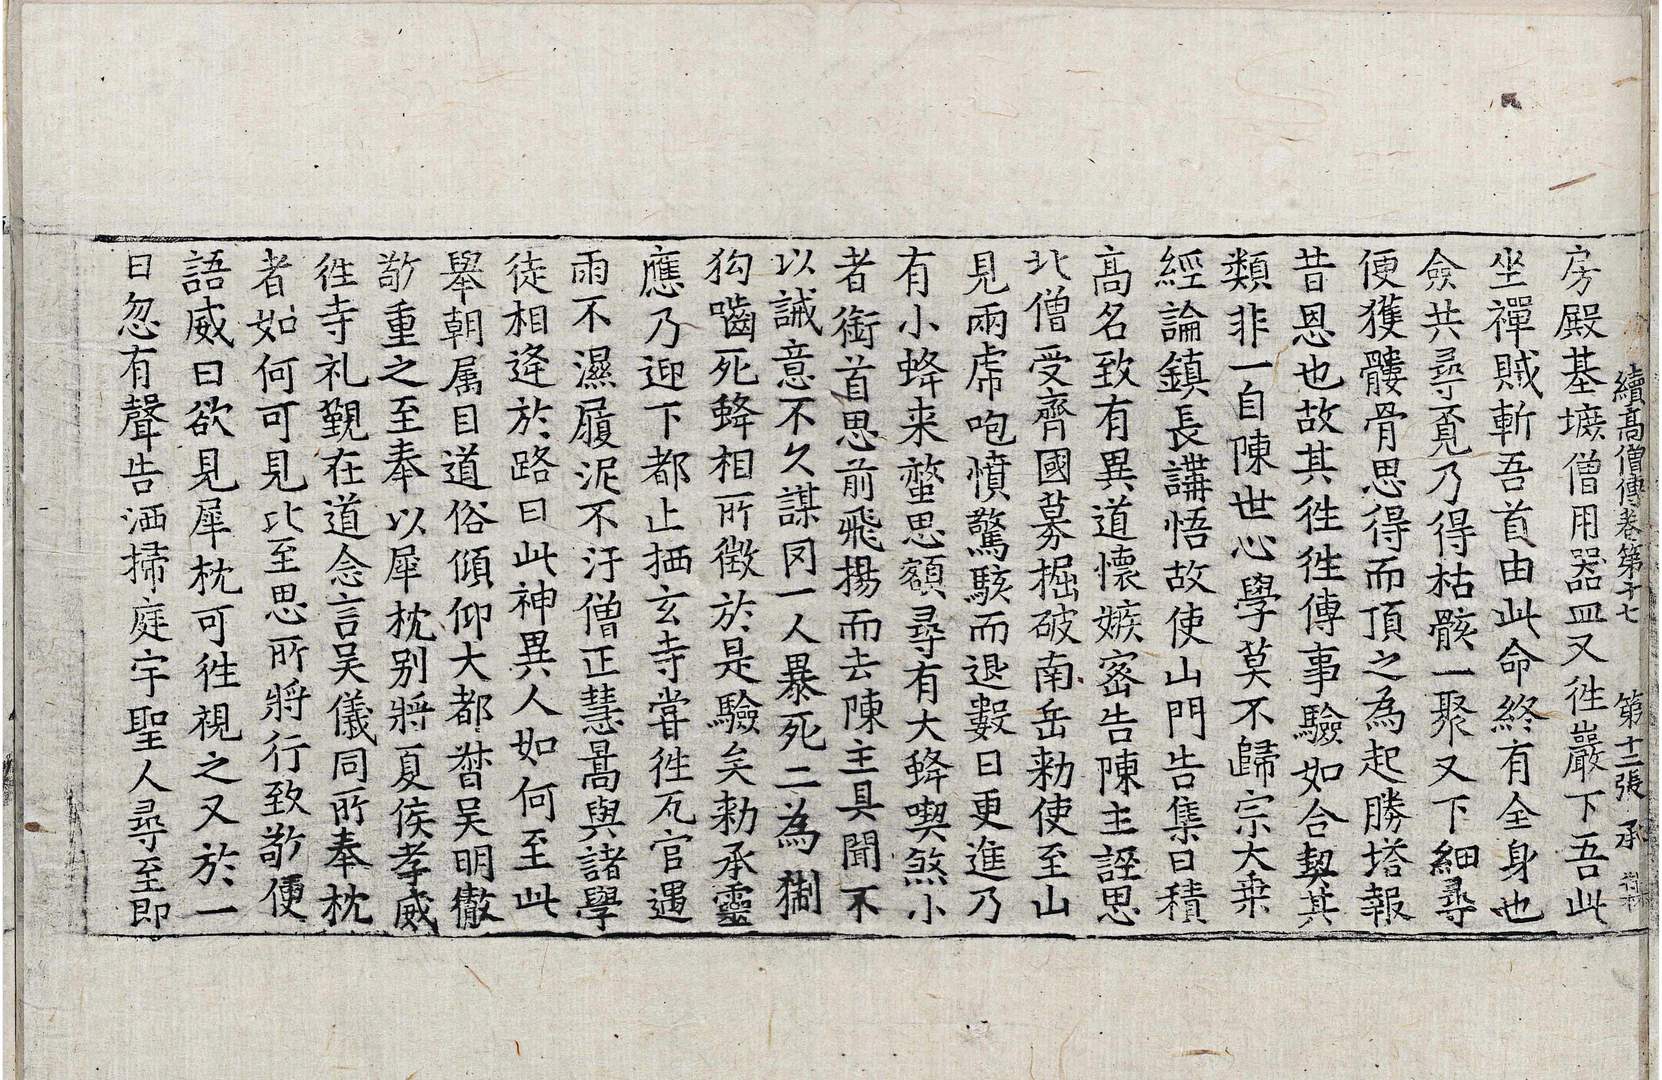 續高僧傳卷第十七 第十二張 承
房殿基墌僧用器皿又徃巖下吾此
坐禪賊斬吾首由此命終有全身也
僉共尋覔乃得枯骸一聚又下細尋
便獲髏骨思得而頂之為起勝塔報
昔恩也故其徃徃傳事驗如合契其
類非一自陳世心學莫不歸宗大乗
經論鎮長講悟故使山門告集日積
髙名致有異道懷嫉密告陳主誣思
北僧受齊國募掘破南岳勑使至山
見兩虎咆憤驚駭而退數日更進乃
有小蜂来螫思額尋有大蜂喫煞小
者銜首思前飛揚而去陳主具聞不
以誡意不久謀罔一人暴死二為猘
狗嚙死蜂相所徵於是驗矣勑承靈
應乃迎下都止栖玄寺甞徃瓦官遇
雨不濕履泥不汙僧正慧暠與諸學
徒相逄於路曰此神異人如何至此
舉朝属目道俗傾仰大都督吴明徹
敬重之至奉以犀枕别將夏侯孝威
徃寺礼覲在道念言吴儀同所奉枕
者如何可見比至思所將行致敬便
語威曰欲見犀枕可徃視之又於一
日忽有聲告洒掃庭宇聖人尋至即